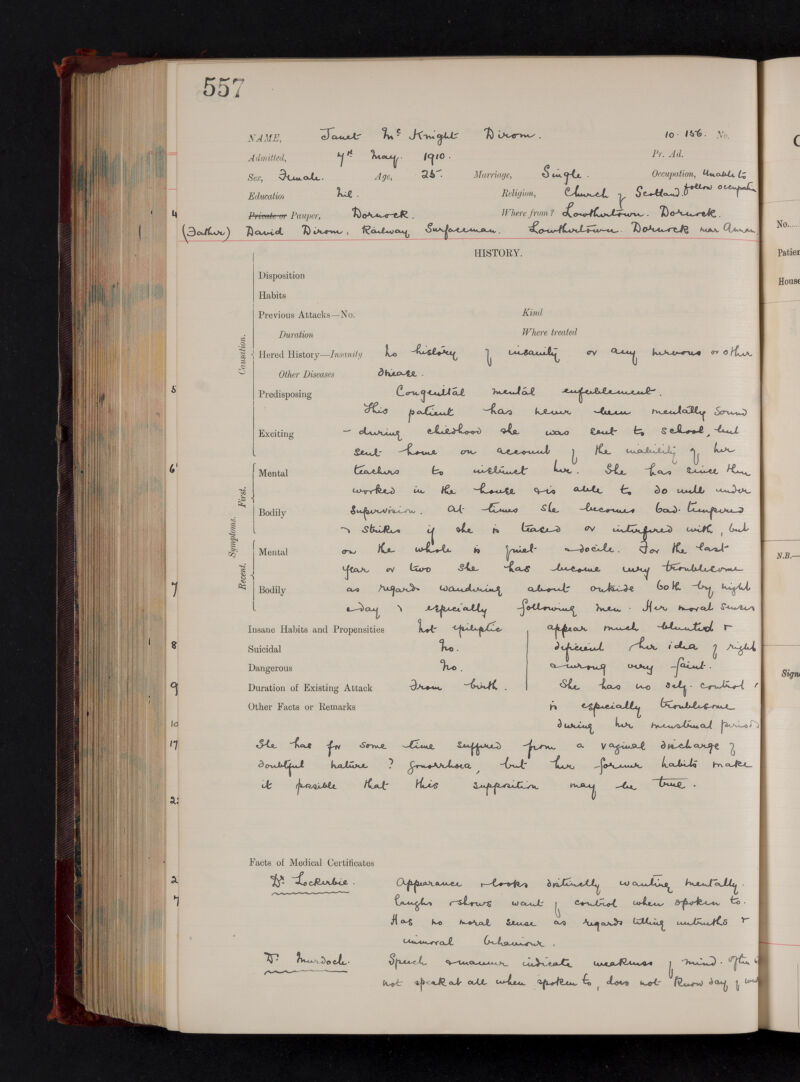 557
NAME, Janet Mc Knight Dirom. 10.156. No.
Admitted, 7th May. 1910. Pr. Ad.
Sex, Female. Age, 25. Marriage, Single. Occupation, Unable to
Education Nil. Religion, Church of Scotland. follow occupation
Private or Pauper, Dornock. Where from? Lowthertown. Dornock.
(Father) David Dirom, Railway Surfaceman. Lowthertown. Dornock near Annan
HISTORY.
Disposition
Habits
Previous Attacks—No. Kind
Duration Where treated
Causation.
Hered History—Insanity No history of insanity or any nervous or other
Other Diseases disease.
Predisposing Congenital mental enfeeblement.
This patient has never been mentally sound
Exciting - during childhood she was sent to school, but
sent home on account of the inability of her
Symptoms. First.
Mental teachers to instruct her. She has since then
worked in the house & is able to do well under
Bodily supervision. At times she becomes bad-tempered
& strikes if she is teased or interfered with, but
Recent.
Mental on the whole is quiet & docile. For the last
year or two she has become very troublesome
Bodily as regards wandering about outside both by night
& day & especially following men. Her moral senses
Insane Habits and Propensities Not epileptic appear much blunted &
Suicidal No. deficient & her idea of right
Dangerous No. & wrong very faint.
Duration of Existing Attack From birth. She has no self-control &
Other Facts or Remarks is especially troublesome
during her menstrual periods
She has for some time suffered from a vaginal discharge of
doubtful nature ? gonorrhoea, but her former habits make
it possible that this supposition may be true.
Facts of Medical Certificates
Dr. Lockerbie. Appearance & looks distinctly wanting mentally.
laughs & shows want of control when spoken to.
Has no moral sense as regards telling untruths &
immoral behaviour.
Dr. Murdoch. Speech & manner indicate weakness of mind. Often
not speak at all when spoken to, does not know day of
4
5
6
7
8
9
10
17
2
7
No.....
Patien
House
N.B.—
Sign